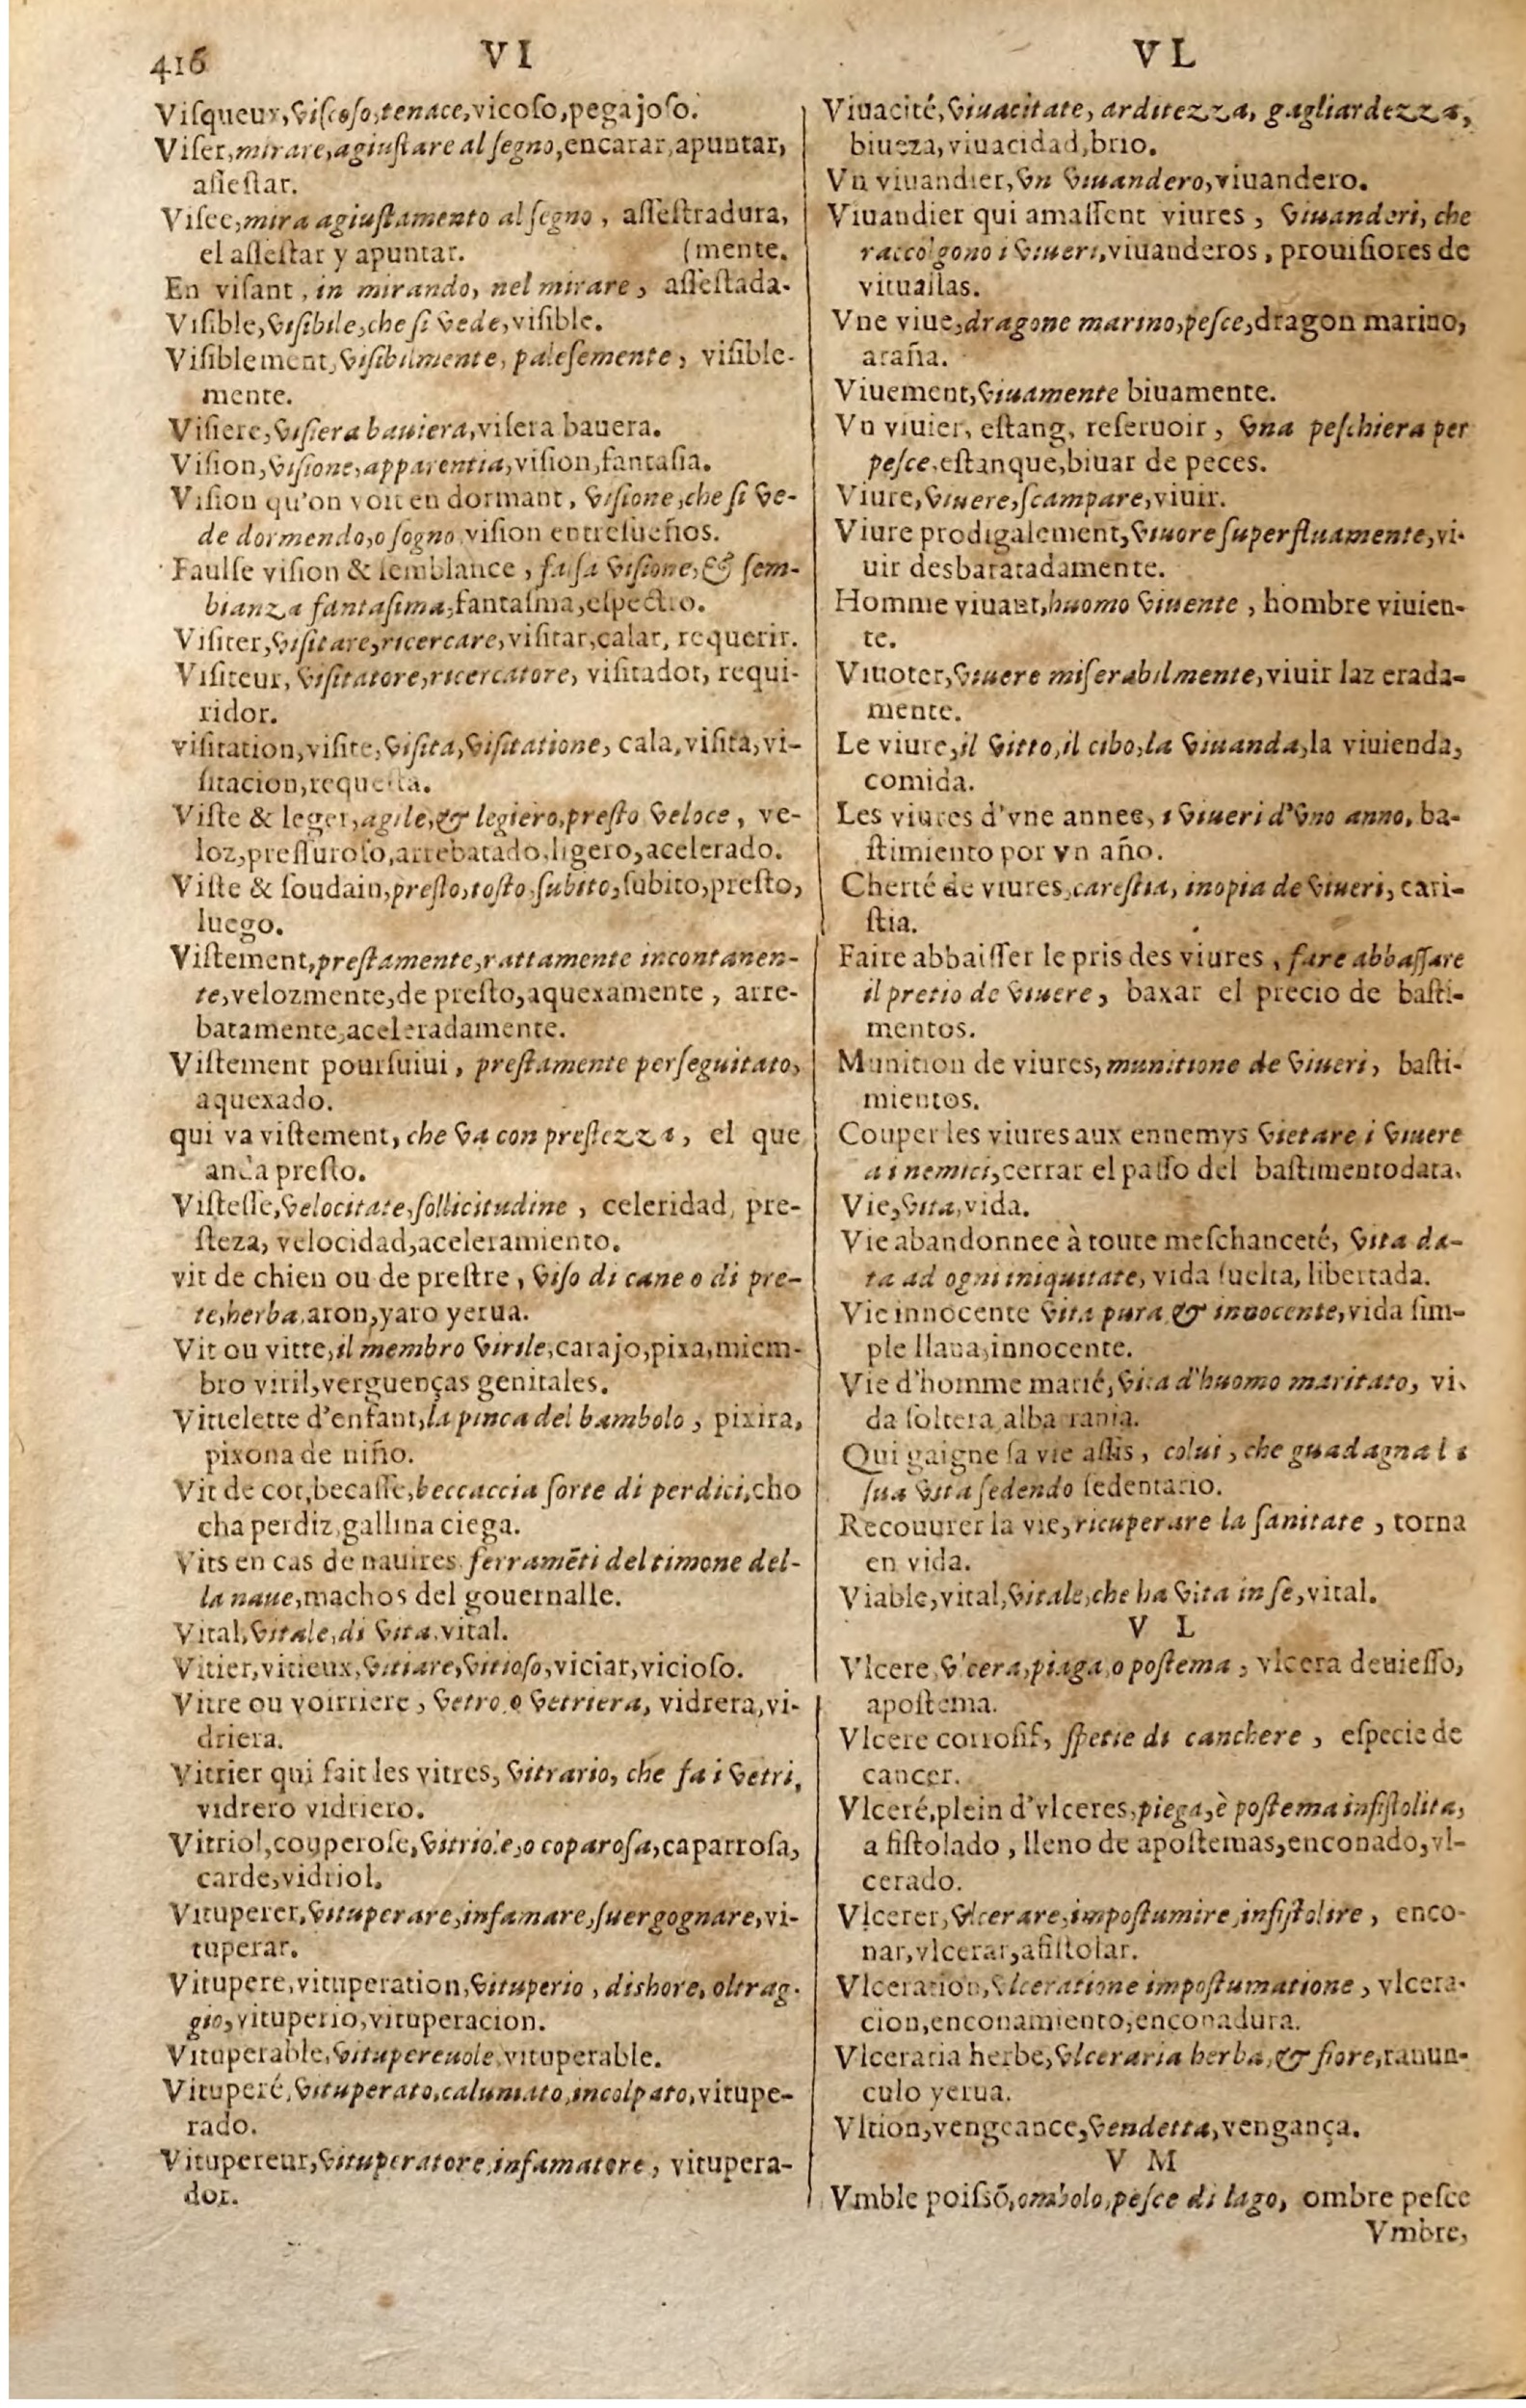 416 VI VL
Viſqueux, viſcoſo, tenace, vicoſo, pegajoſo.
Viſer, mirare, agiuſtare al ſegno, encarar, apuntar,
aſſeſtar.
Viſee, mira agiuſtamento al ſegno, aſſeſtradura,
el aſſeſtar y apuntar. (mente.
En viſant, in mirando, nel mirare, aſſeſtada-
Viſible, viſibile, che ſi vede, viſible.
Viſiblement, viſibilmente, paleſemente, viſible-
mente.
Viſiere, viſiera bauiera, viſera bauera.
Viſion, viſione, apparentia, viſion, fantaſia.
Viſion qu'on voit en dormant, viſione, che ſi ve-
de dormendo, o ſogno viſion entreſueños.
Faulſe viſion & ſemblance, falſa viſione, & ſem-
bianza fantaſima, fantaſma, eſpectro.
Viſiter, viſitare, ricercare, viſitar, calar, requerir.
Viſiteur, viſitatore, ricercatore, viſitador, requi-
ridor.
viſitation, viſite, viſita, viſitatione, cala, viſita, vi-
ſitacion, requeſta.
Viſte & leger, agile, & legiero, preſto veloce, ve-
loz, preſſuroſo, arrebatado, ligero, acelerado.
Viſte & ſoudain, preſto, toſto, ſubito, ſubito, preſto,
luego.
Viſtement, preſtamente, rattamente incontanen-
te, velozmente, de preſto, aquexamente, arre-
batamente, aceleradamente.
Viſtement pourſuiui, preſtamente perſeguitato,
aquexado.
qui va viſtement, che va con preſtezza, el que
anda preſto.
Viſteſſe, velocitate, ſollicitudine, celeridad, pre-
ſteza, velocidad, aceleramiento.
vit de chien ou de preſtre, viſo di cane o di pre-
te, herba, aron, yaro yerua.
Vit ou vitte, il membro virile, carajo, pixa, miem-
bro viril, verguenças genitales.
Vittelette d'enfant, la pinca del bambolo, pixira,
pixona de niño.
Vit de coc, becaſſe, beccaccia ſorte di perdici, cho
cha perdiz, gallina ciega.
Vits en cas de nauires ferramẽti del timone del-
la naue, machos del gouernalle.
Vital, vitale, di vita, vital.
Vitier, vitieux, vitiare, vitioſo, viciar, vicioſo.
Vitre ou voirriere, vetro o vetriera, vidrera, vi-
driera.
Vitrier qui fait les vitres, vitrario, che fa i vetri,
vidrero vidriero.
Vitriol, couperoſe, vitriole, o coparoſa, caparroſa,
carde, vidriol.
Vituperer, vituperare, infamare, ſuergognare, vi-
tuperar.
Vitupere, vituperation, vituperio, dishore, oltrag-
gio, vituperio, vituperacion.
Vituperable, vitupereuole, vituperable.
Vituperé, vituperato, calumato, incolpato, vitupe-
rado.
Vitupereur, vituperatore, infamatore, vitupera-
dor.
Viuacité, viuacitate, arditezza, gagliardezza,
biueza, viuacidad, brio.
Vn viuandier, vn viuandero, viuandero.
Viuandier qui amaſſent viures, viuanderi, che
raccolgono i viueri, viuanderos, prouiſiores de
vituallas.
Vne viue, dragone marino, peſce, dragon marino,
araña.
Viuement, viuamente biuamente.
Vn viuier, eſtang, reſeruoir, vna peſchiera per
peſce, eſtanque, biuar de peces.
Viure, viuere, ſcampare, viuir.
Viure prodigalement, viuore ſuperfluamente, vi-
uir desbaratadamente.
Homme viuant, huomo viuente, hombre viuien-
te.
Viuoter, viuere miſerabilmente, viuir laz erada-
mente.
Le viure, il vitto, il cibo, la viuanda, la viuienda,
comida.
Les viures d'vne annee, i viueri d'vno anno, ba-
ſtimiento por vn año.
Cherté de viures, careſtia, inopia de viueri, cari-
ſtia.
Faire abbaiſſer le pris des viures, fare abbaſſare
il pretio de viuere, baxar el precio de baſti-
mentos.
Munition de viures, munitione de viueri, baſti-
mientos.
Couper les viures aux ennemys vietare i viuere
a i nemici, cerrar el paſſo del baſtimentodata.
Vie, vita, vida.
Vie abandonnee à toute meſchanceté, vita da-
ta ad ogni iniquitate, vida ſuelta, libertada.
Vie innocente vita pura & innocente, vida ſim-
ple llana, innocente.
Vie d'homme marié, vita d'huomo maritato, vi-
da ſoltera alba rania.
Qui gaigne ſa vie aſſis, colui, che guadagna la
ſua vita ſedendo ſedentario.
Recouurer la vie, ricuperare la ſanitate, torna
en vida.
Viable, vital, vitale, che ha vita in ſe, vital.
V L
Vlcere vlcera, piaga, o poſtema, vlcera deuieſſo,
apoſtema.
Vlcere corroſif, ſpetie di canchere, eſpecie de
cancer.
Vlceré, plein d'vlceres, piega, è poſtema infiſtolita,
a fiſtolado, lleno de apoſtemas, enconado, vl-
cerado.
Vlcerer, vlcerare, impoſtumire, infiſtolire, enco-
nar, vlcerar, afiſtolar.
Vlceration, vlceratione impoſtumatione, vlcera-
cion, enconamiento, enconadura.
Vlceraria herbe, vlceraria herba, & fiore, ranun-
culo yerua.
Vltion, vengeance, vendetta, vengança.
V M
Vmble poiſsõ, ombolo, peſce di lago, ombre peſce
Vmbre,